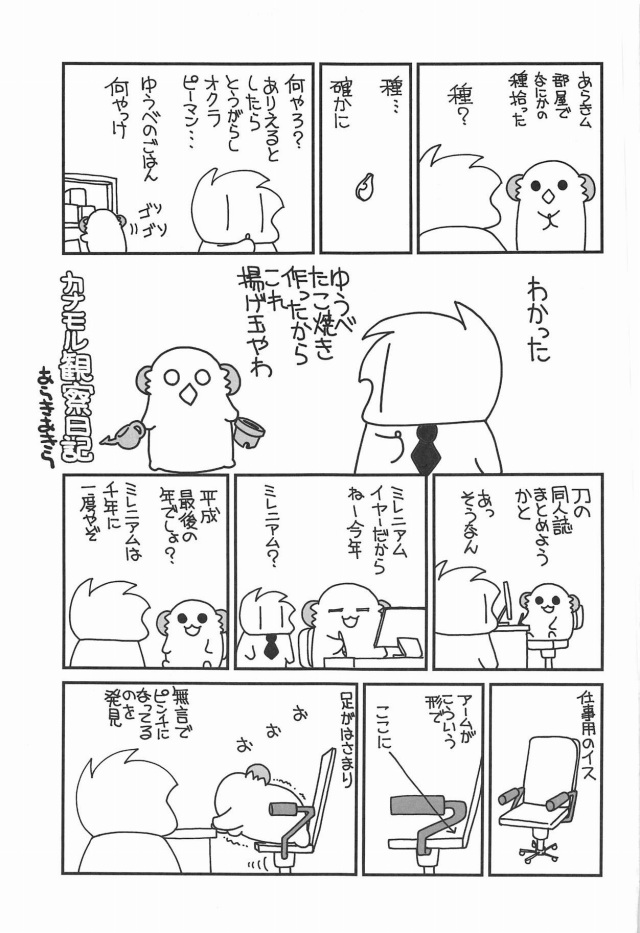 あらきム
部屋で
なにかの
種拾った
種？
種…
確かに
何やろ？
ありえると
したら
とうがらし
オクラ
ピーマン…
ゆうべのごはん
何やっけ
ゴソ
ゴソ
わかった
ゆうべ
たこ焼き
作ったから
これ
揚げ玉やわ
カナモル観察日記
あらきあきら
刀の
同人誌
まとめよう
かと
あっ
そうなん
ミレニアム
イヤーだから
ねー今年
ミレニアム？
平成
最後の
年でしょ？
ミレニアムは
千年に
一度やぞ
仕事用のイス
アームが
こういう
形で
ここに
足がはさまり
お
お
お
無言で
ピンチに
なってる
のを
発見